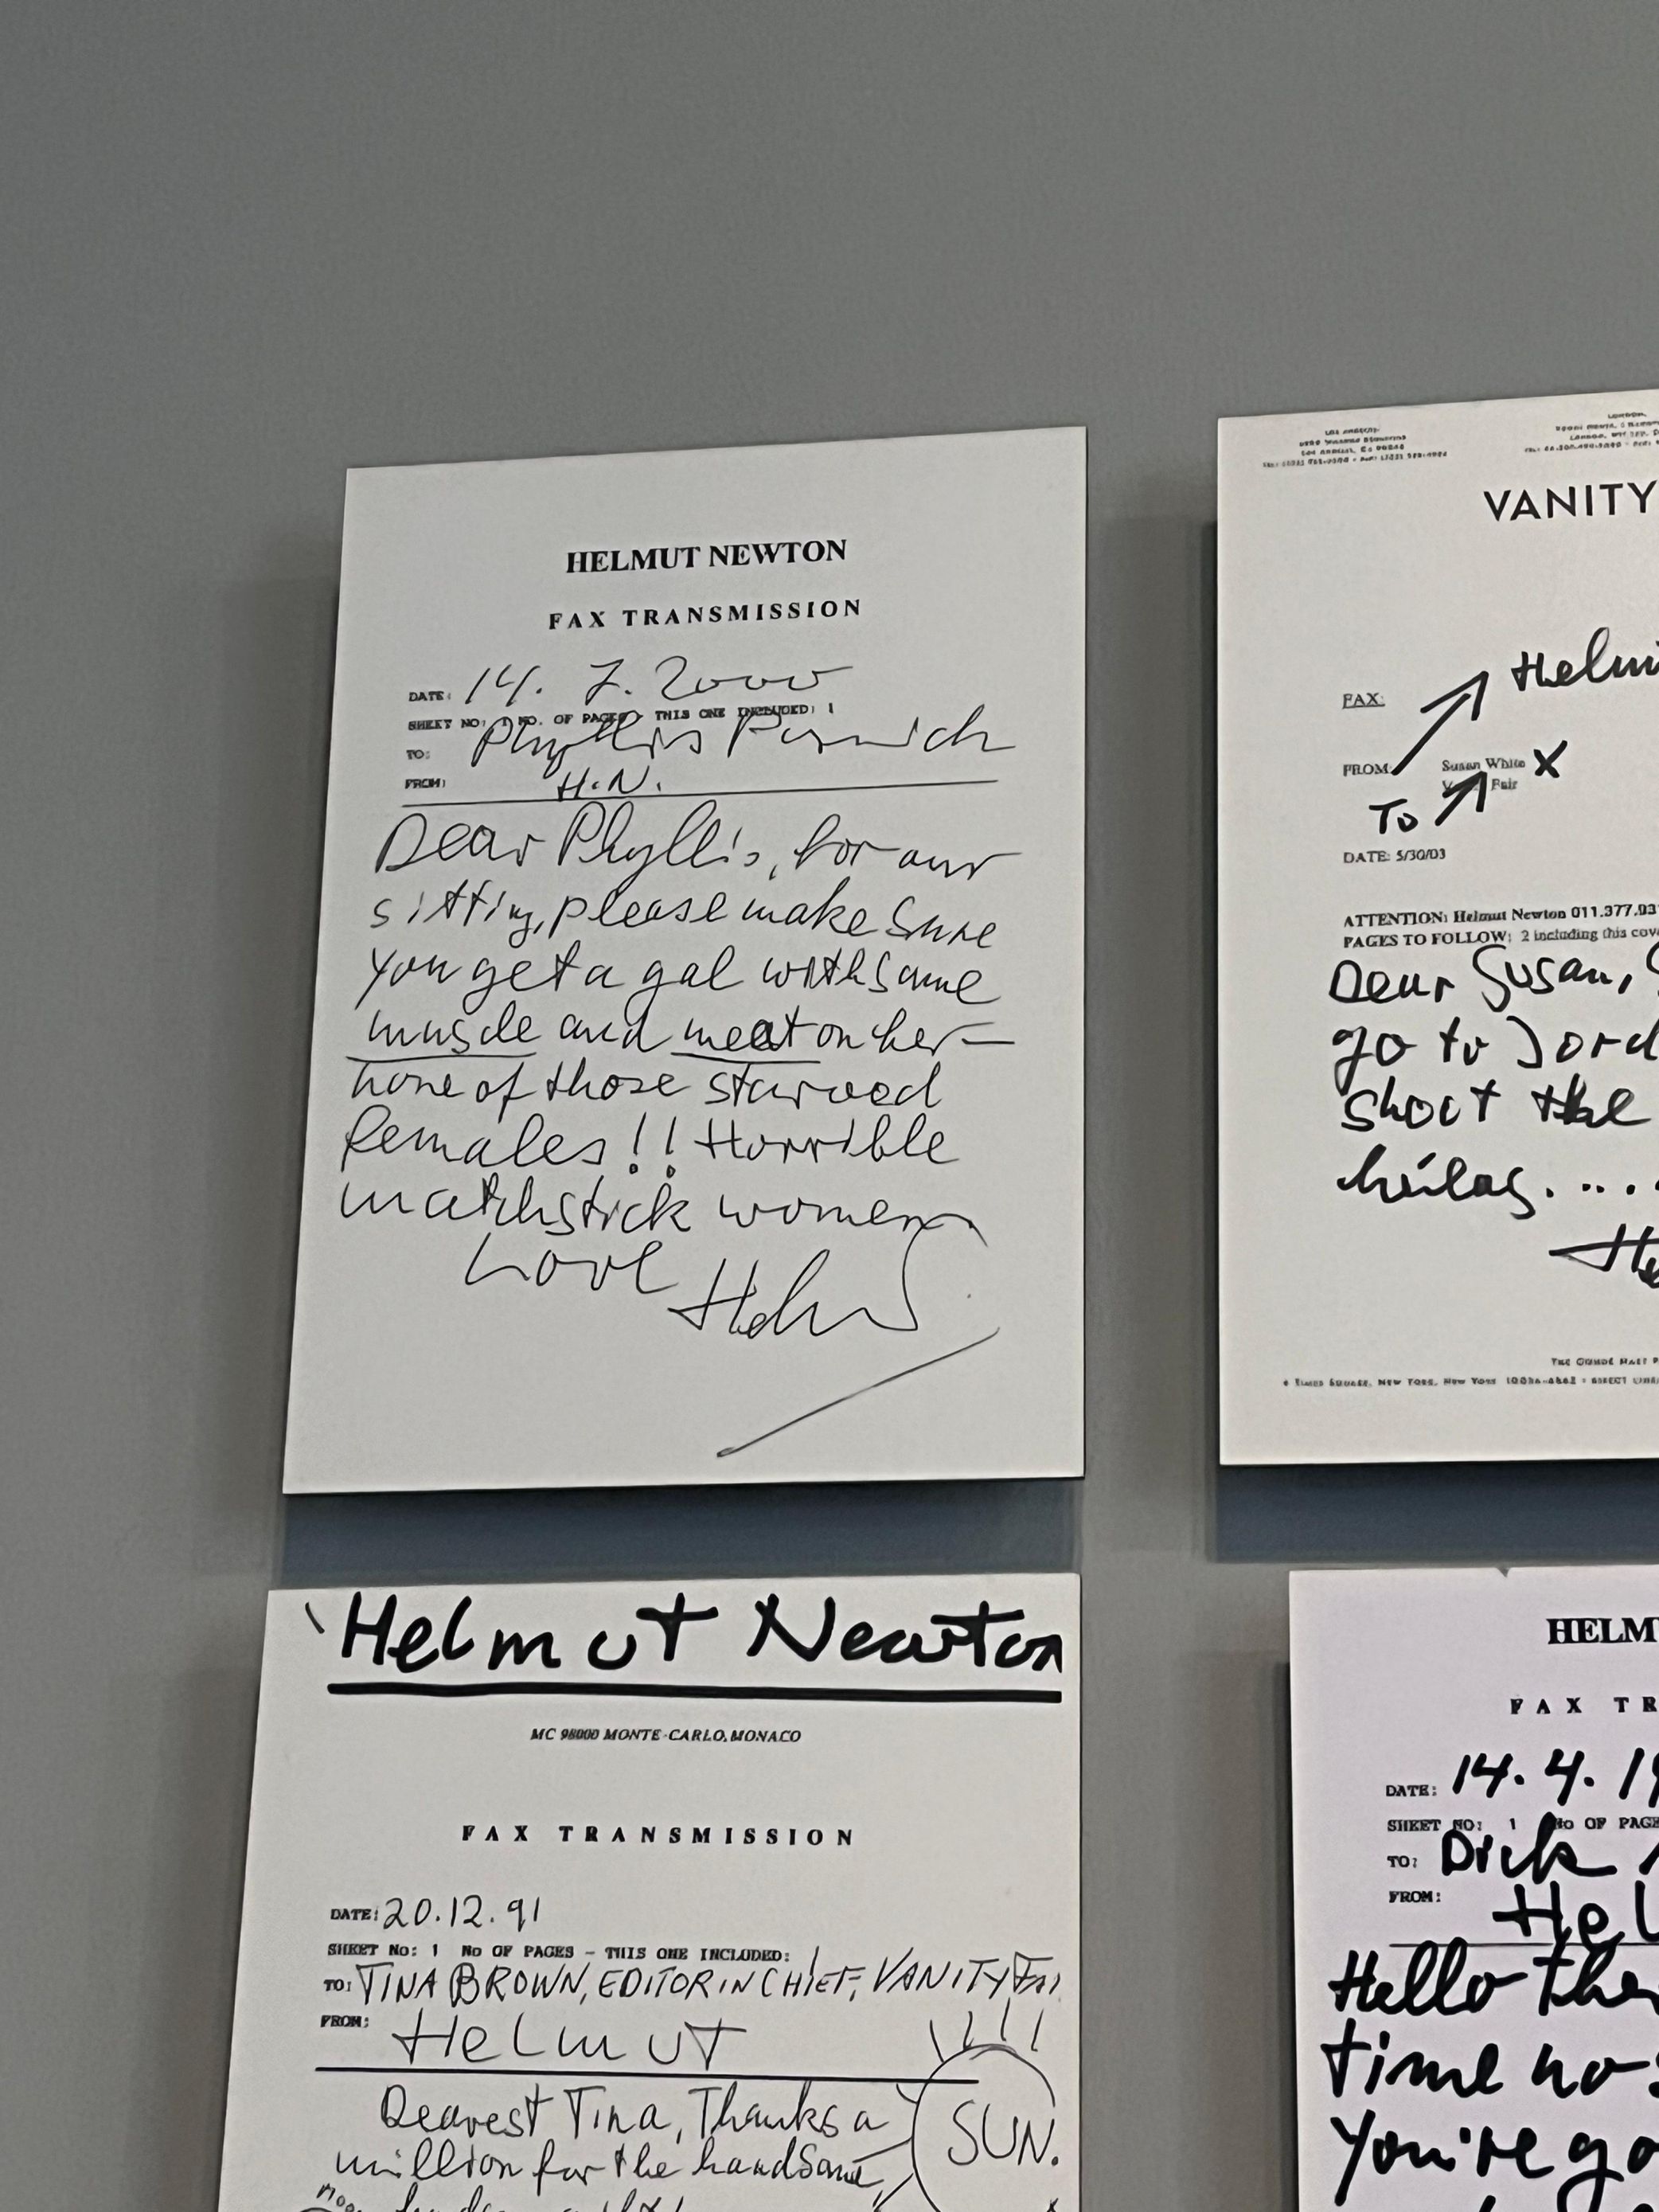 HELMUT NEWTON
FAX TRANSMISSION
DATE: 14. 7. 2000
SHEET NO: 1 NO. OF PAGES - THIS ONE INCLUDED: 1
TO: Phyllis
FROM: H.N.
Dear Phyllis, for our
sitting, please make sure
you get a gal with some
muscle and meat on her —
none of those starved
females!! Horrible
matchstick women
Love Helmut
VANITY
FAX:
FROM: Susan White X
Fair
To
DATE: 5/30/03
ATTENTION: Helmut Newton 011.377.93
PAGES TO FOLLOW: 2 including this cov
Dear Susan,
go to Jord
shoot the
hélas....
He
Helmut Newton
MC 98000 MONTE-CARLO, MONACO
FAX TRANSMISSION
DATE: 20.12.91
SHEET No: 1 No OF PAGES - THIS ONE INCLUDED: 1
TO: TINA BROWN, EDITOR IN CHIEF, VANITY Fai
FROM: Helmut
Dearest Tina, Thanks a
million for the handsome
SUN.
moo
HELM
FAX TR
DATE: 14. 4. 19
SHEET NO: 1 No OF PAGE
TO: Dick
FROM: Hel
Hello the
time no s
you're go